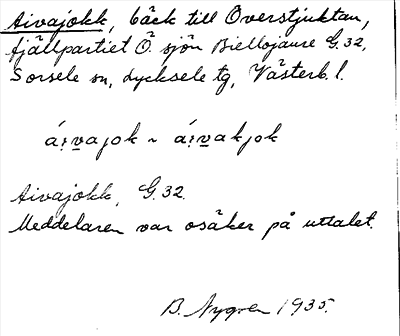 Aivajokk, bäck till Överstjuktan,
fjällpartiet Ö. sjön Biellojaure G.32,
Sorsele sn, Lycksele tg, Västerb. l.
áịvajok ~ áịvakjok
Aivajokk, G.32.
Meddelaren var osäker på uttalet.
B. Nygren 1935.